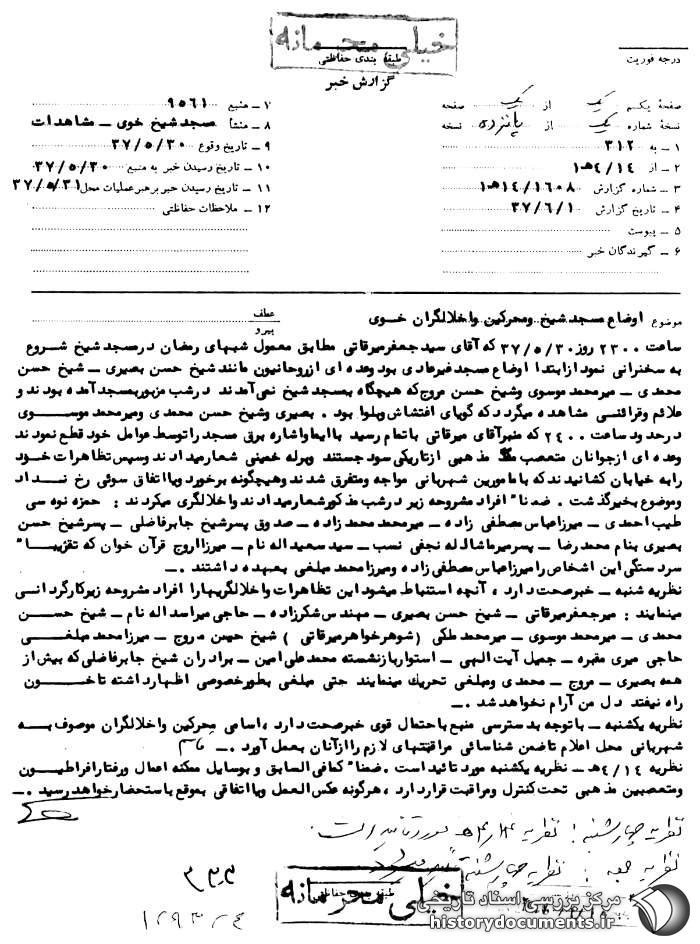 خیلی محرمانه
درجه فوریت
طبقه بندی حفاظتی
گزارش خبر
صفحهٔ یکم یک از یک صفحه
نسخهٔ شماره یک از پانزده نسخه
۱ ـ به ۳۱۲
۲ ـ از ۱۴/۴ه‍
۳ ـ شماره گزارش ۱۶۰۸/۱۴ه‍۱
۴ ـ تاریخ گزارش ۳۷/۶/۱
۵ ـ پیوست
۶ ـ گیرندگان خبر
۷ ـ منبع ۹۵۶۱
۸ ـ منشأ مسجد شیخ خوی ـ مشاهدات
۹ ـ تاریخ وقوع ۳۷/۵/۳۰
۱۰ ـ تاریخ رسیدن خبر به منبع ۳۷/۵/۳۰
۱۱ ـ تاریخ رسیدن خبر برهبر عملیات محل ۳۷/۵/۳۱
۱۲ ـ ملاحظات حفاظتی
موضوع اوضاع مسجد شیخ ومحرکین واخلالگران خوی
عطف
پیرو
ساعت ۲۳۰۰ روز ۳۷/۵/۳۰ که آقای سید جعفر میرقاتی مطابق معمول شبهای رمضان در مسجد شیخ شروع
به سخنرانی نمود از ابتدا اوضاع مسجد غیرعادی بود وعده ای از روحانیون مانند شیخ حسن بصیری ـ شیخ حسن
محمدی ـ میرمحمد موسوی وشیخ حسن مروج که هیچگاه بمسجد شیخ نمی آمدند در شب مزبور بمسجد آمده بودند و
علائم وقرائنی مشاهده میگردد که گویای اغتشاش وبلوا بود . بصیری وشیخ حسن محمدی ومیرمحمد موسوی
در حدود ساعت ۲۴۰۰ که منبر آقای میرقاتی باتمام رسید با ایما واشاره برق مسجد را توسط عوامل خود قطع نمودند
وعده ای از جوانان متعصب مذهبی از تاریکی سود جستند وبرله خمینی شعار میدادند وسپس تظاهرات خود
را به خیابان کشانیدند که با مامورین شهربانی مواجه ومتفرق شدند وهیچگونه برخورد ویا اتفاق سوئی رخ نداد
وموضوع بخیر گذشت . ضمنا" افراد مشروحه زیر در شب مذکور شعار میدادند واخلالگری میکردند : حمزه نوه سی
طیب احمدی ـ میرزا عباس مصطفی زاده ـ میرمحمد محمد زاده ـ صدوق پسر شیخ جابر فاضلی ـ پسر شیخ حسن
بصیری بنام محمد رضا ـ پسر میر ماشااله نجفی نسب ـ سید سعید اله نام ـ میرزا اروج قرآن خوان که تقریبا"
سردستگی این اشخاص را میرزا عباس مصطفی زاده ومیرزا محمد مبلغی بعهده داشتند .ـ
نظریه شنبه ـ خبر صحت دارد ، آنچه استنباط میشود این تظاهرات واخلالگریها را افراد مشروحه زیر کارگردانی
مینمایند : میرجعفر میرقاتی ـ شیخ حسن بصیری ـ مهندس شکرزاده ـ حاجی میر اسد اله نام ـ شیخ حسن
محمدی ـ میرمحمد موسوی ـ میرمحمد ملکی ( شوهر خواهر میرقاتی ) شیخ حسن مروج ـ میرزا محمد مبلغی
حاجی میری مقبره ـ جمیل آیت الهی ـ استوار بازنشسته محمد علی امین ـ برادران شیخ جابر فاضلی که بیش از
همه بصیری ـ مروج ـ محمدی ومبلغی تحریک مینمایند حتی مبلغی بطور خصوصی اظهار داشته تا خون
راه نیفتد دل من آرام نخواهد شد .ـ
نظریه یکشنبه ـ با توجه به دسترسی منبع باحتمال قوی خبر صحت دارد ، اسامی محرکین واخلالگران موصوف به
شهربانی محل اعلام تا ضمن شناسائی مراقبتهای لازم را از آنان بعمل آورد .ـ
نظریه ۱۴/۴ه‍ ـ نظریه یکشنبه مورد تائید است . ضمنا" کمافی السابق و بوسایل ممکنه اعمال ورفتار افراطیون
ومتعصبین مذهبی تحت کنترل ومراقبت قرار دارد ، هرگونه عکس العمل ویا اتفاقی بموقع باستحضار خواهد رسید .ـ
نظریه چهارشنبه : نظریه ۱۴/۴ه‍ مورد تائید است .
نظریه جمعه : نظریه چهارشنبه
۳۳۳
خیلی محرمانه
طبقه بندی حفاظتی
مرکز بررسی اسناد تاریخی
historydocuments.ir